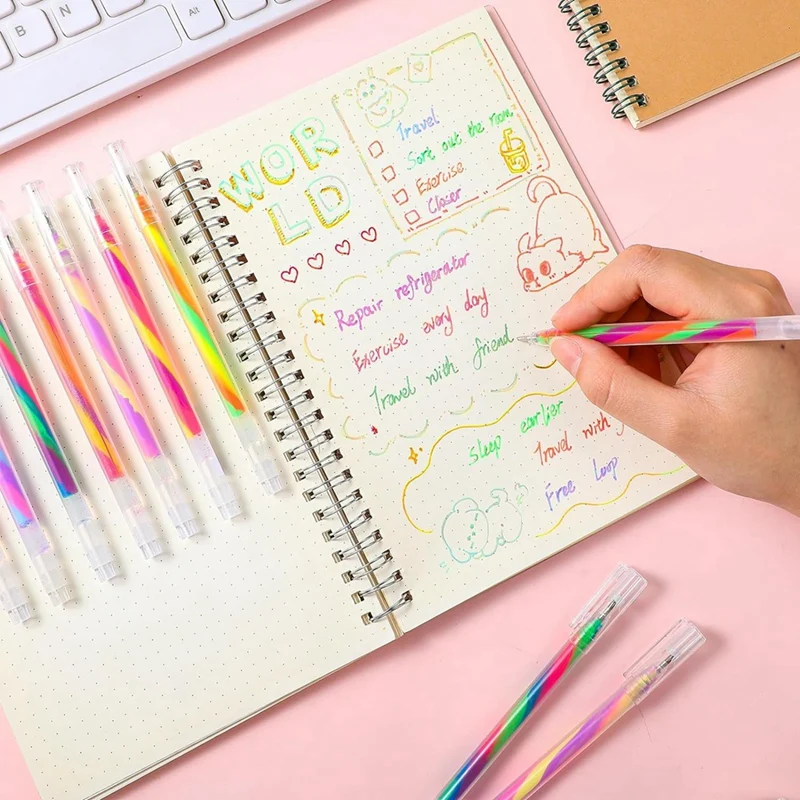 B
N
M
Alt
WOR
LD
Travel
Sort out the room
Exercise
Closer
Repair refrigerator
Exercise every day
Travel with friend
Sleep earlier
Travel with
Free Loop